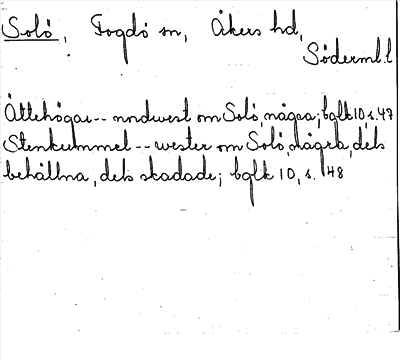 Solö, Fogdö sn, Åkers hd,
Söderml. l
Ättehögar -- nordwest om Solö, några; bglk 10, s. 47
Stenkummel -- wester om Solö, några, dels
behållna, dels skadade; bglk 10, s. 48